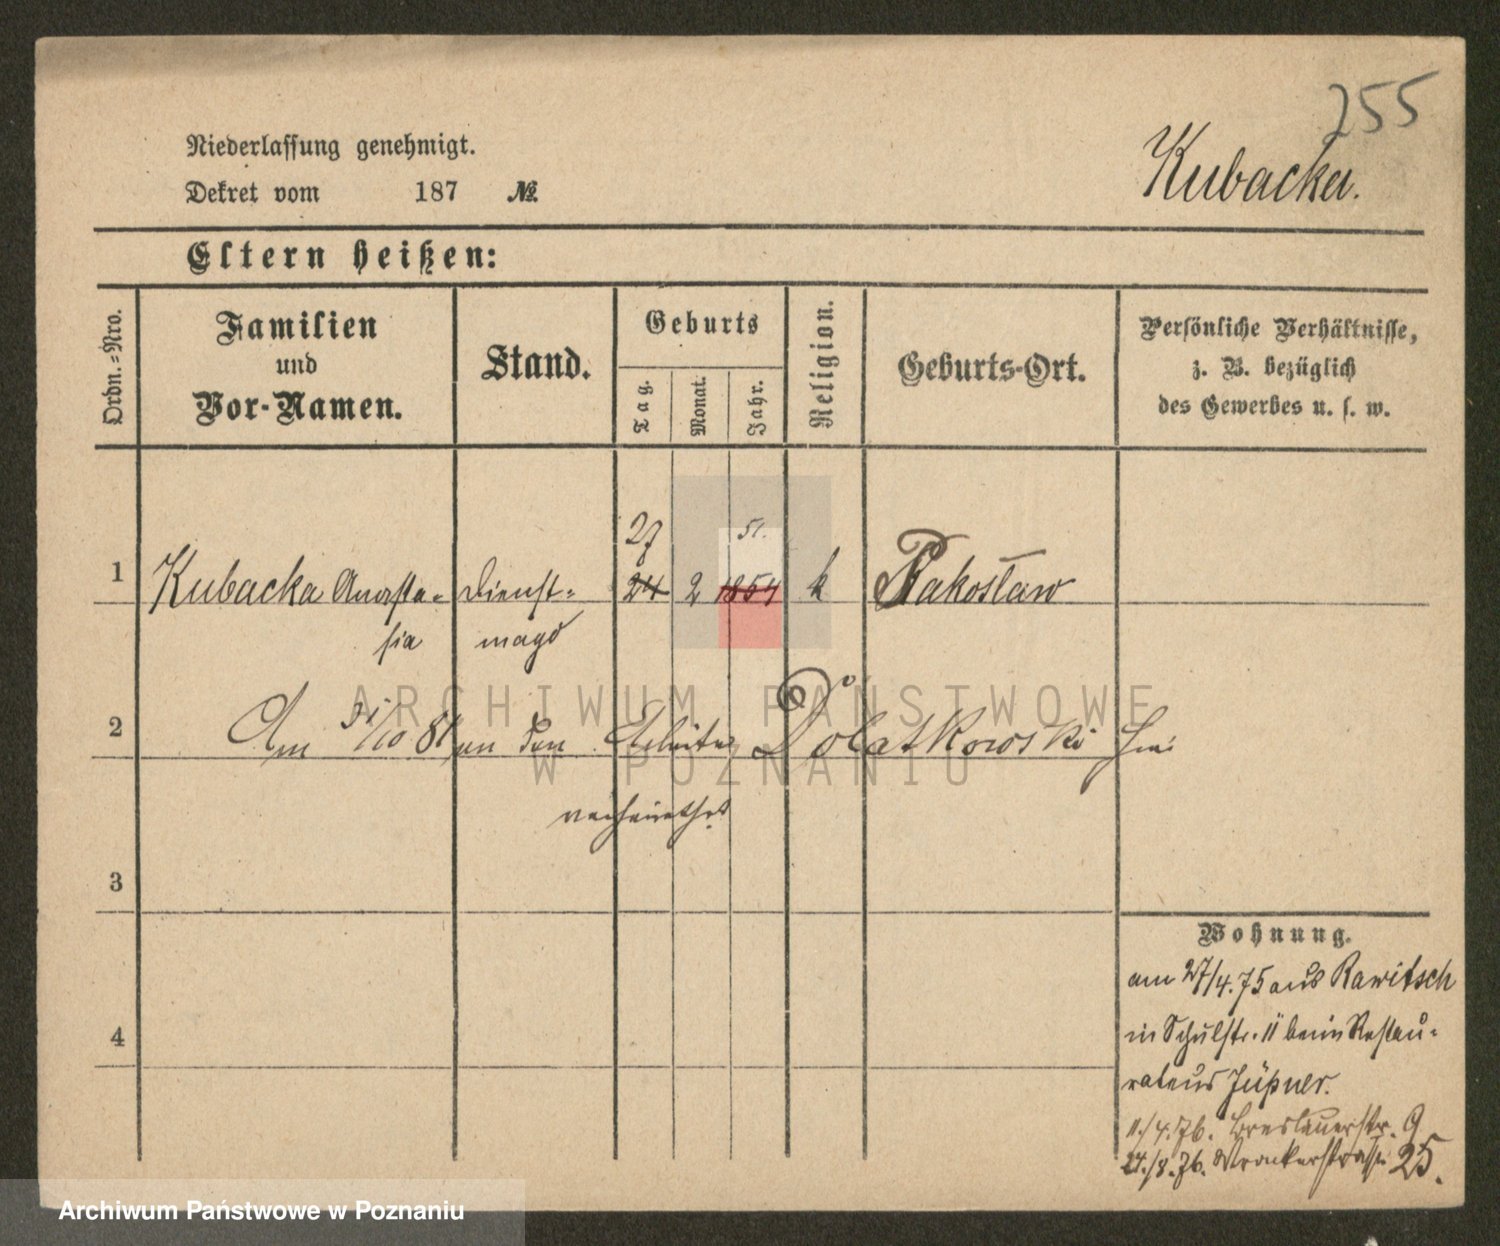 255
Niederlassung genehmigt.
Kubacka.
Dekret vom 187 №
Eltern heißen:
Ordn.=Nro.
Familien
und
Vor-Namen.
Stand.
Geburts
Tag.
Monat.
Jahr.
Religion.
Geburts-Ort.
Persönliche Verhältnisse,
z. B. bezüglich
des Gewerbes u. s. w.
27 51.
1 Kubacka Anasta= Dienst= 24 2 1854 k Rakosław
sia magd
2 Am 31/10 81 an den Arbeiter Dolatkowski hier
verheirathet
3
4
Wohnung.
am 27/4.75 aus Rawitsch
in Schulstr. 11 beim Restau=
rateur Jüpner.
11./4.76. Breslauerstr. 9
24./8.76. Wronkerstraße 25.
ARCHIWUM PAŃSTWOWE
W POZNANIU
Archiwum Państwowe w Poznaniu